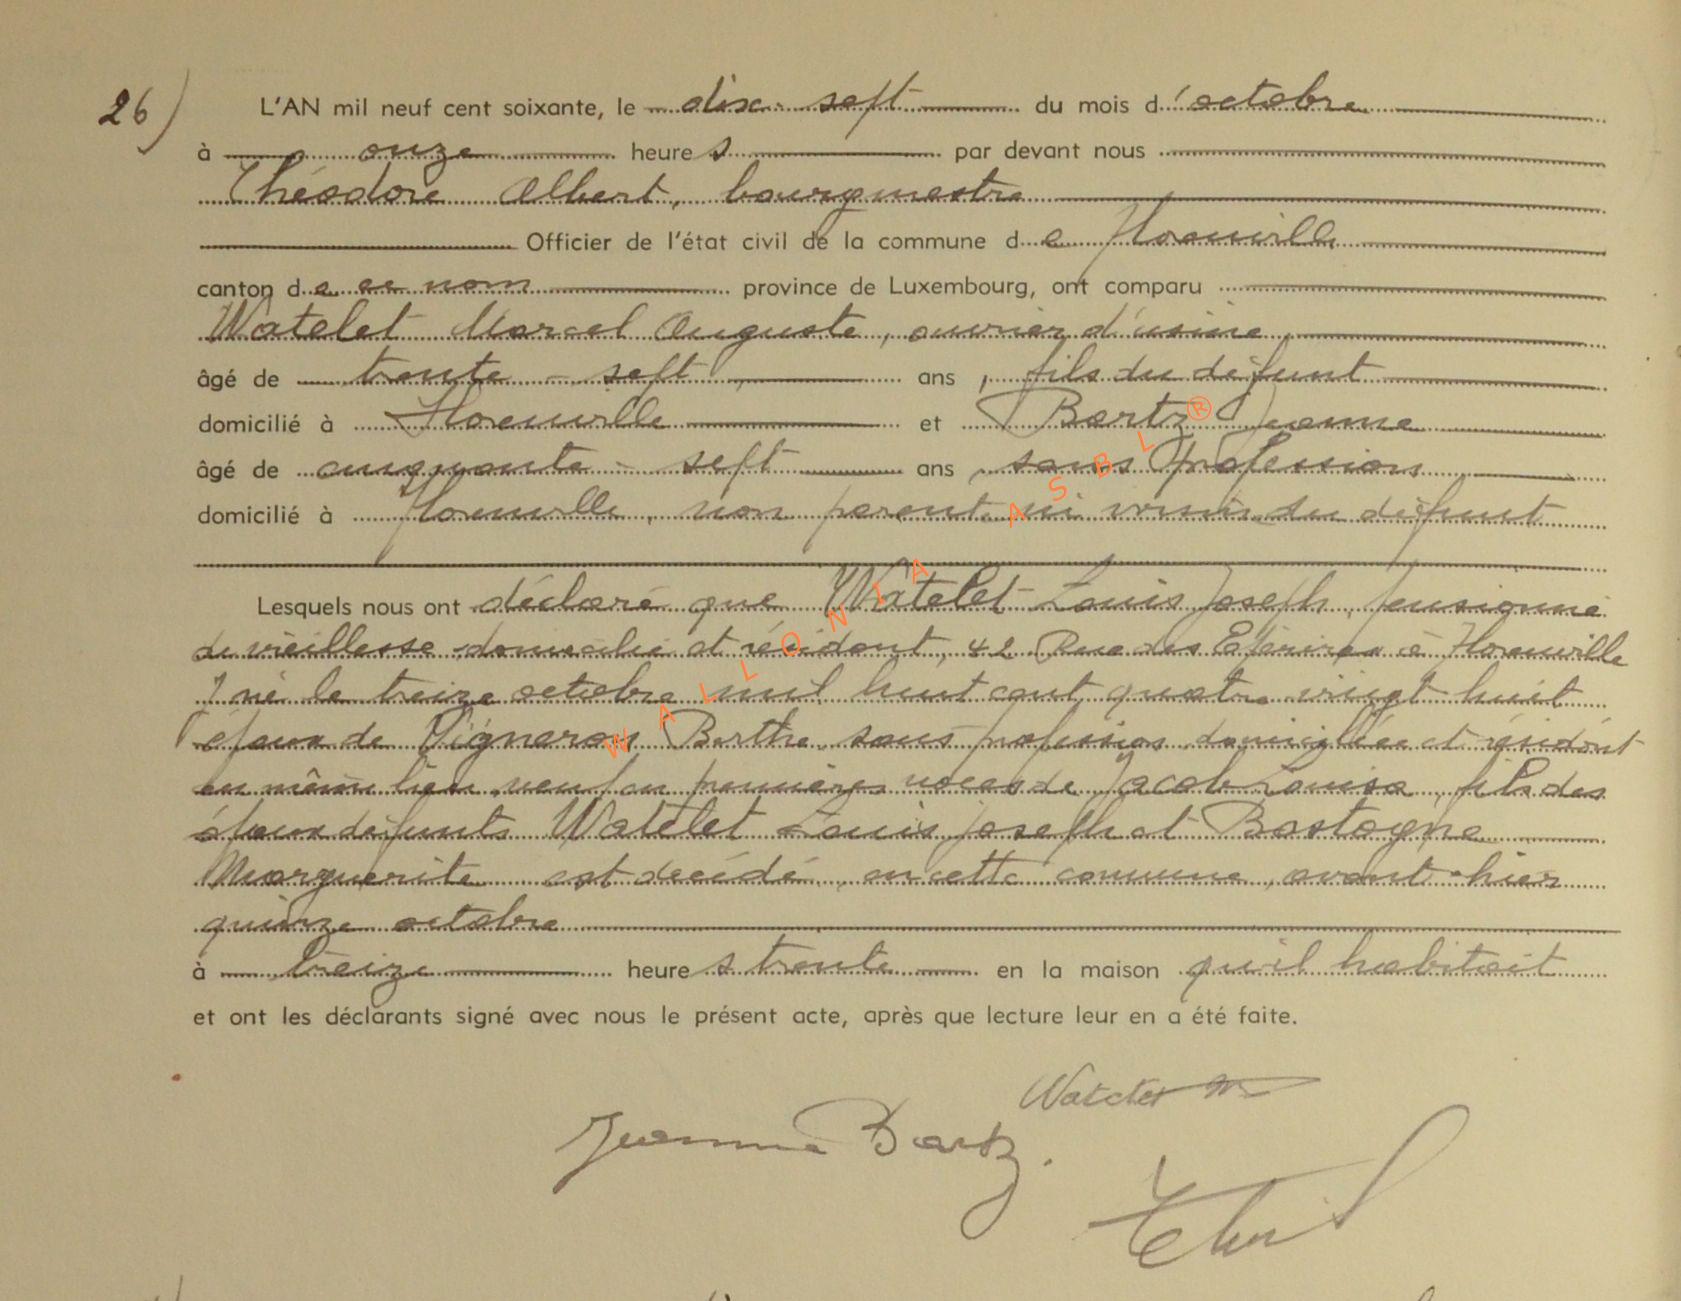 26) L'AN mil neuf cent soixante, le dix-sept du mois d'octobre
à onze heures par devant nous
Théodore Albert, bourgmestre
Officier de l'état civil de la commune de Florenville
canton de ce nom province de Luxembourg, ont comparu
Watelet Marcel Auguste, ouvrier d'usine,
âgé de trente-sept ans, fils du défunt
domicilié à Florenville et Bartz Jeanne
âgé de cinquante-sept ans, sans profession
domicilié à Florenville, non parent ni voisin du défunt
Lesquels nous ont déclaré que Watelet Louis Joseph, pensionné
de vieillesse domicilié et résidant, 42 Rue des à Florenville
né le treize octobre mil huit cent quatre vingt huit
époux de Vigneron Berthe sans profession domiciliée et résidant
en même lieu, veuf en premières noces de Jacob Louise, fils des
époux défunts Watelet Louis Joseph et Bastogne
Marguerite est décédé, en cette commune, avant-hier
quinze octobre
à treize heures trente en la maison qu'il habitait
et ont les déclarants signé avec nous le présent acte, après que lecture leur en a été faite.
Watelet M
Jeanne Bartz.
WALLONIA ASBL ®